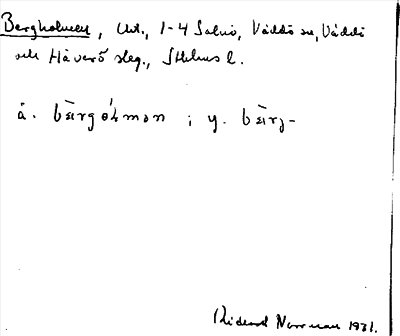 Bergholmen, Unt., 1-4 Salnö, Väddö sn, Väddö
och Häverö slg., Sthlms l.
å. bærgòlmən ; y. bærj-
Rickard Norrman 1931.